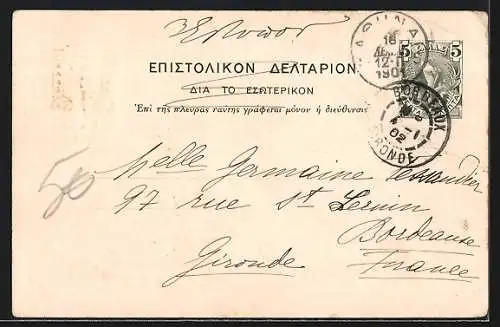 ἜΝΤΥΠΟΝ
ΑΘΗΝΑΙ
16
12-
1901
5 ΕΛΛΑΣ 5
ΕΠΙΣΤΟΛΙΚΟΝ ΔΕΛΤΑΡΙΟΝ
ΔΙΑ ΤΟ ΕΣΩΤΕΡΙΚΟΝ
Ἐπὶ τῆς πλευρᾶς ταύτης γράφεται μόνον ἡ διεύθυνσις
BORDEAUX
1
02
GIRONDE
50
Melle Germaine
97 rue St
Bordeaux
Gironde France